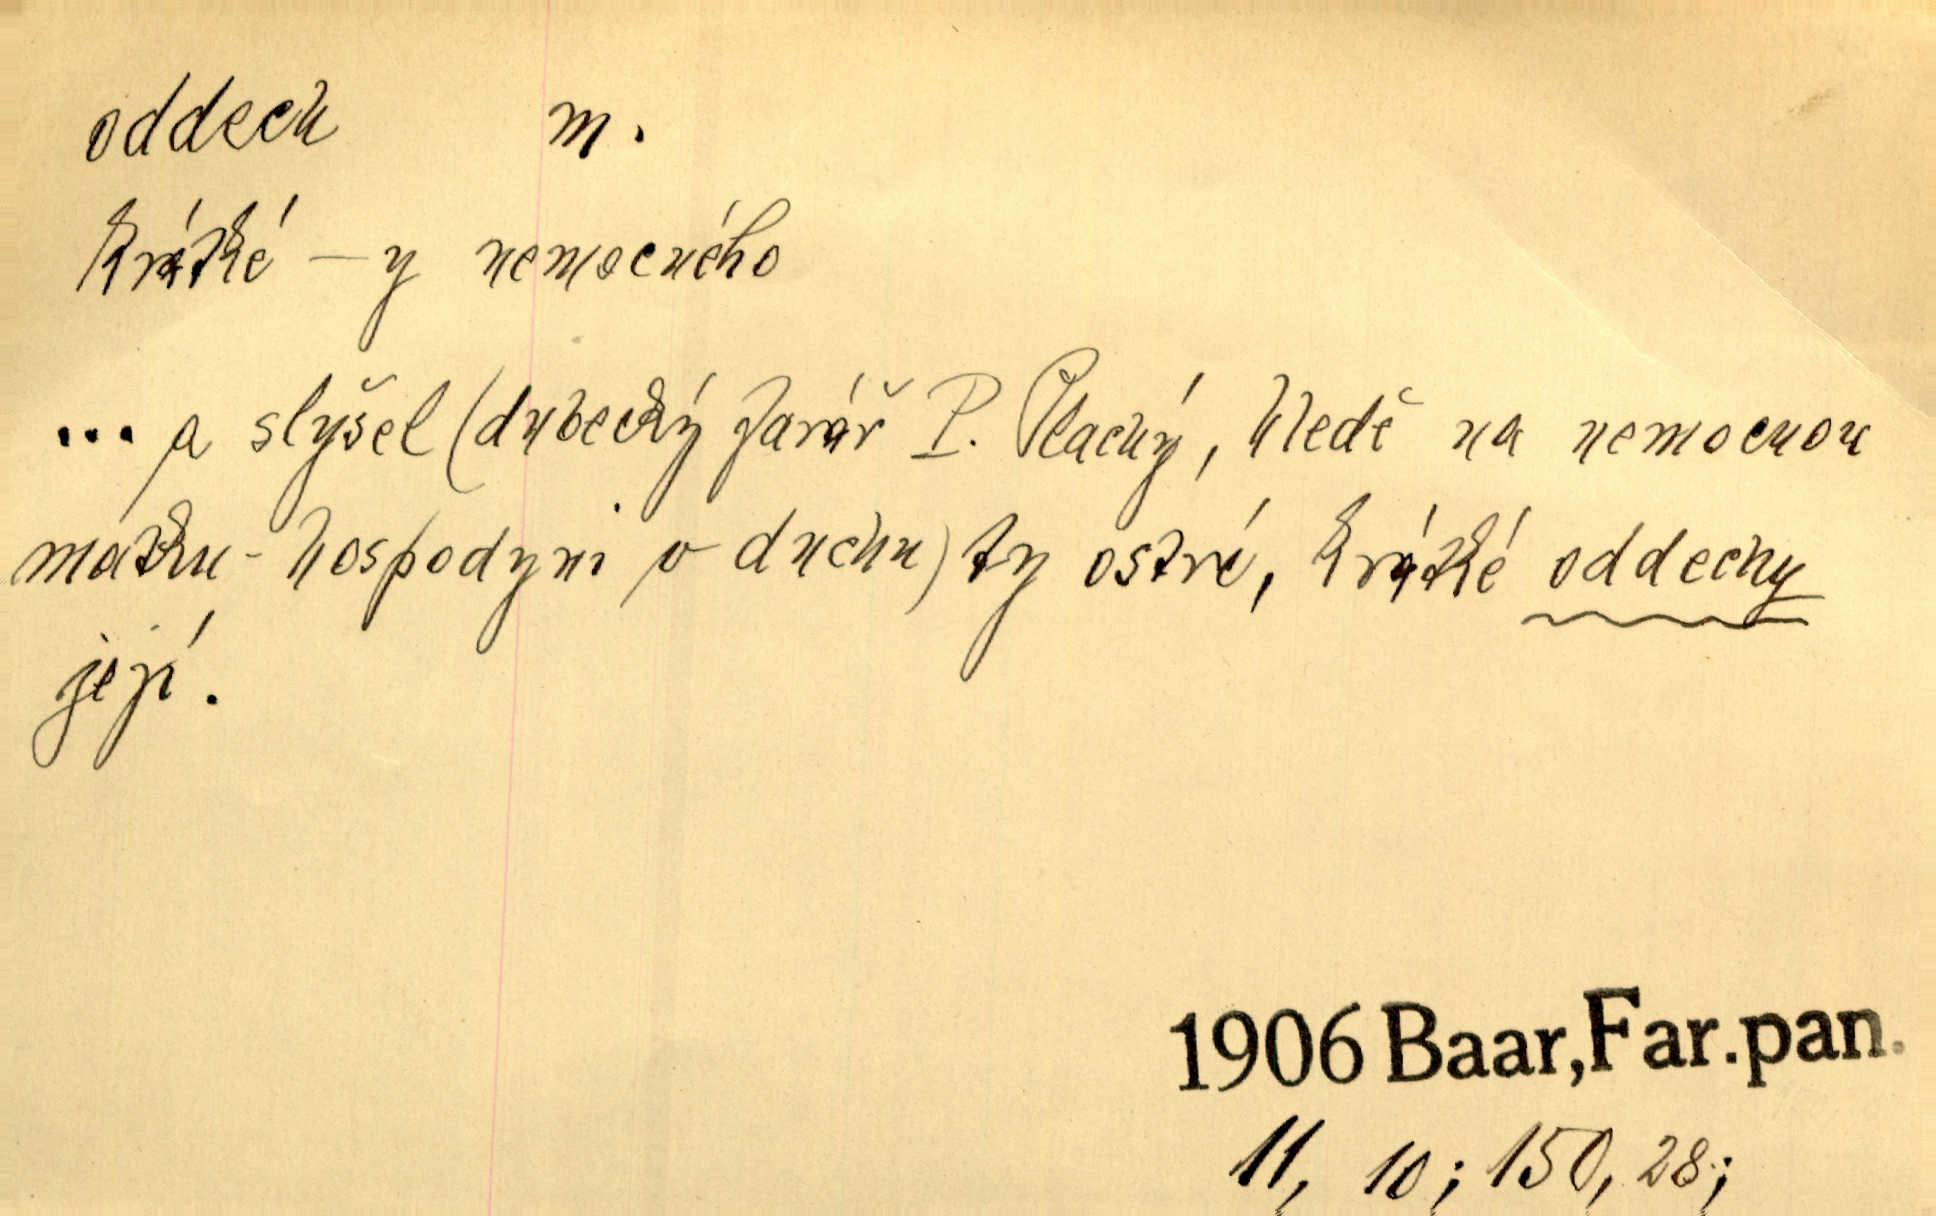 oddech m.
Krátké —y nemocného
... a slyšel (dubecký farář P. Plachý, hledě na nemocnou
matku - hospodyni v duchu) ty ostré, krátké oddechy
její.
1906 Baar, Far. pan.
11, 10; 150, 28;